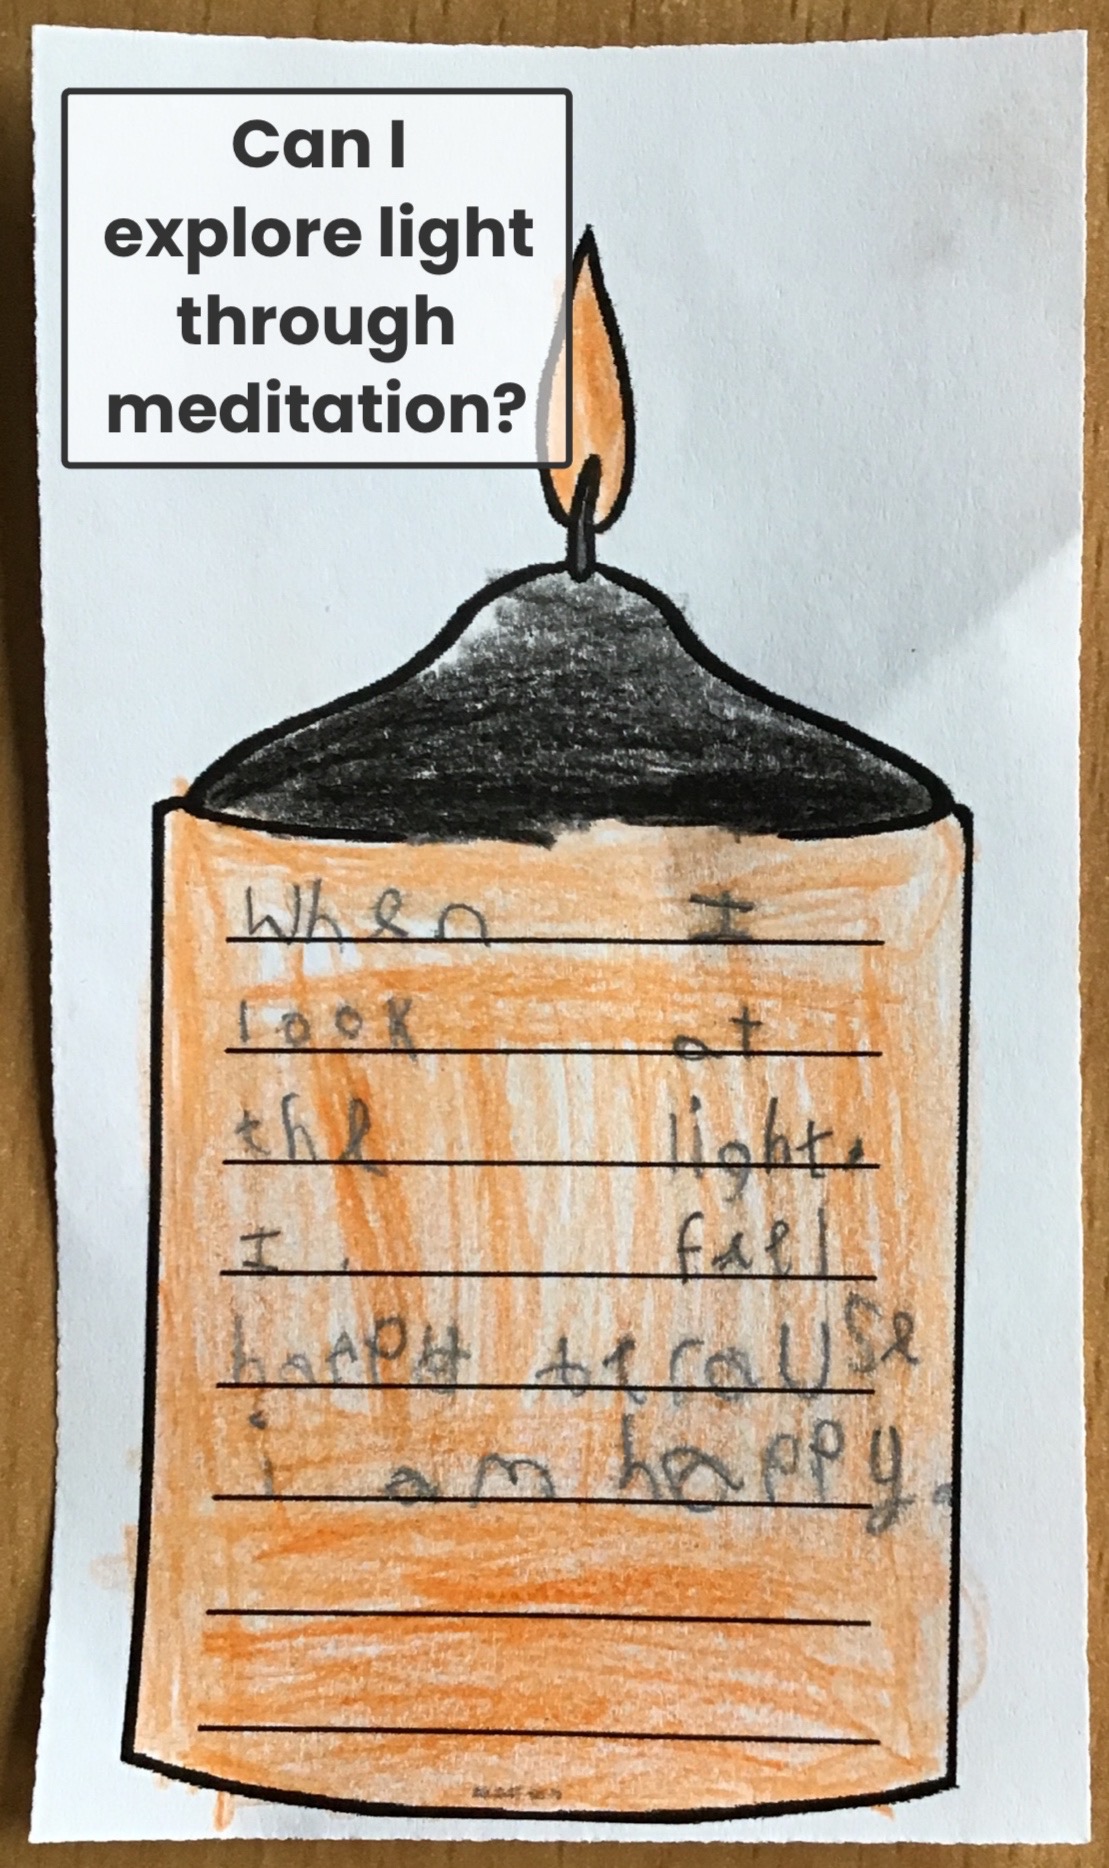 Can I
explore light
through
meditation?
When I
look at
the light.
I feel
happy because
i am happy.